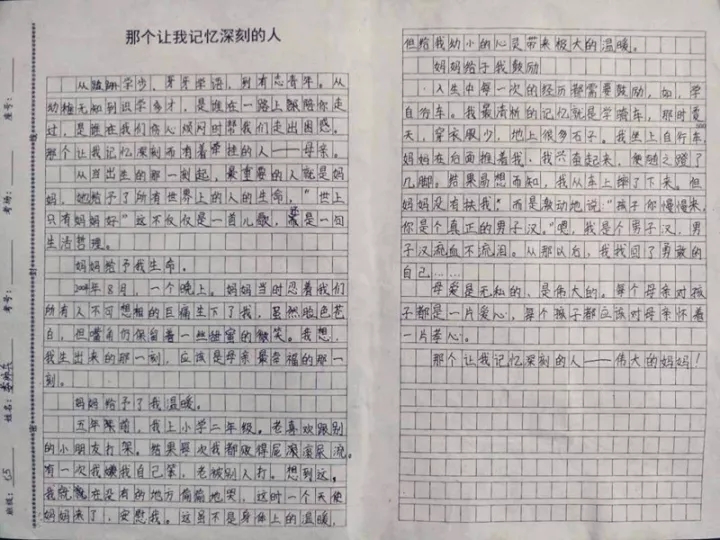 那个让我记忆深刻的人
从蹒跚学步、牙牙学语，到有志青年。从
幼稚无知到识学多才，是谁在一路上跟陪你走
过，是谁在我们伤心烦闷时帮我们走出困惑。
那个让我记忆深刻而有着牵挂的人——母亲。
从当出生的那一刻起，最重要的人就是妈
妈，她给予了所有世界上的人的生命，“世上
只有妈妈好”这不仅仅是一首儿歌，是一句
生活哲理。
妈妈给予我生命。
年8月，一个晚上。妈妈当时忍着我们
所有人不可想相的巨痛生下了我，虽然脸色苍
白，但嘴角仍保留着一些甜蜜的微笑。我想，
我生出来的那一刻，应该是母亲最幸福的那一
刻。
妈妈给予了我温暖。
五年前，我上小学二年级。老喜欢跟别
的小朋友打架。结果每次我都败得屁滚尿流。
有一次我嫌我自己笨，老被别人打。想到这，
我就在没有的地方偷偷地哭，这时一个天使
妈妈来了，安慰我。这虽不是身体上的温暖，
但给我幼小的心灵带来极大的温暖。
妈妈给于我鼓励
人生中每一次的经历都需要鼓励，如，学
自行车。我最清晰的记忆就是学骑车，那时夏
天，穿衣服少，地上很多石子。我坐上自行车，
妈妈在后面推着我、我兴奋起来，便随之蹬了
几脚。结果易想而知，我从车上摔了下来。但
妈妈没有扶我，而是激动地说：“孩子你慢慢来，
你是个真正的男子汉。”嗯，我是个男子汉，男
子汉流血不流泪。从那以后，我找回了勇敢的
自己……
母爱是无私的、是伟大的。每个母亲对孩
子都是一片爱心，每个孩子都应该对母亲怀着
一片孝心。
那个让我记忆深刻的人——伟大的妈妈！
座号：
考场：
考号：
姓名：
班级：